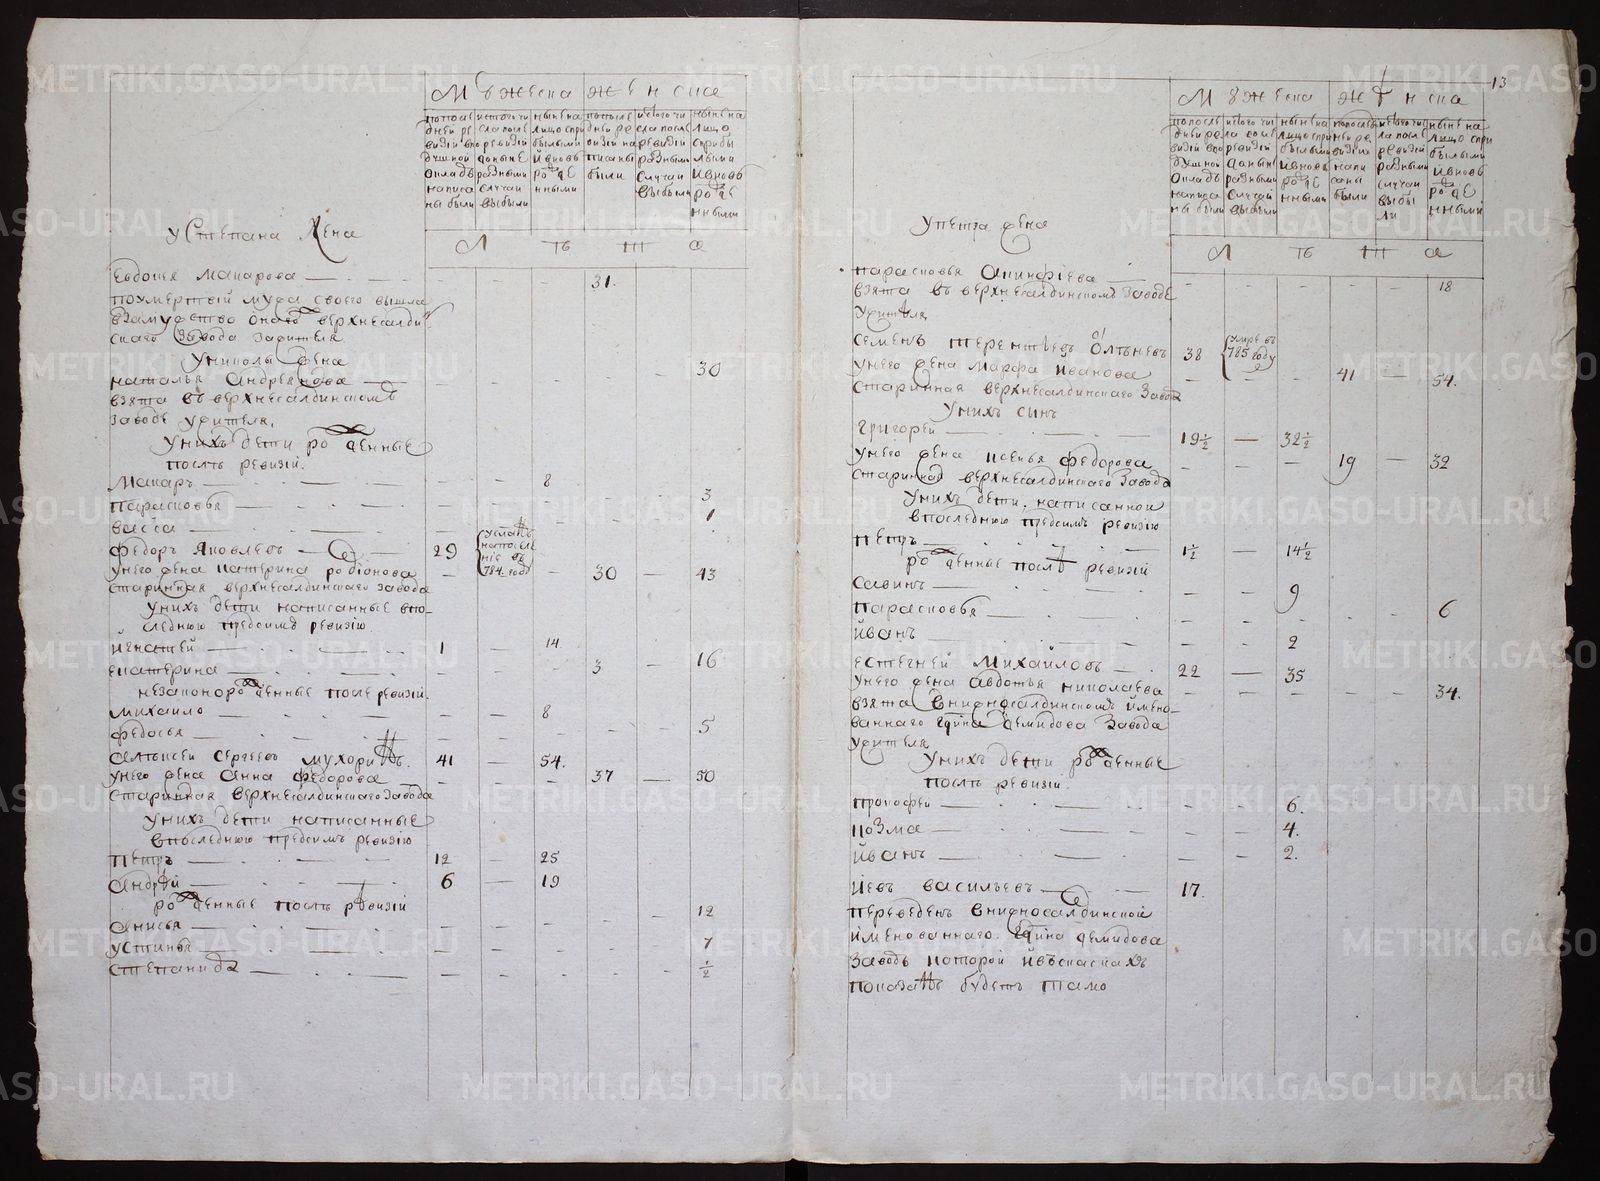 Мужеска женска
по последней ревизии в подушной оклад написаны были
ис того числа после ревизии до ныне разными случаи выбыли
ныне на лицо с прибылыми и вновь рожденными
по последней ревизии написаны были
ис того числа после ревизии разными случаи выбыли
ныне на лицо с прибылыми и вновь рожденными
у Степана жена
Л ѣ т а
Евдокея Макарова 31.
по умертвии мужа своего вышла
в замужство оного верхнесалдин
скаго завода за жителя
У Николы жена 30
Наталья Андреянова
взята в верхнесалдинскомъ
заводе у жителя.
У нихъ дети рожденные
после ревизии.
Макаръ 8
Парасковья 3
Васса 1
Федоръ Яковлевъ 29
усланъ на поселение въ 784 году
У него жена Катерина Родионова 30 43
старинная верхнесалдинскаго завода
У нихъ дети написанные в по-
следнюю предъ симъ ревизию
Игнатей 1 14
Екатерина 3 16
незаконорожденные после ревизии.
Михайло 8
Федосья 5
Алексей Сергеевъ Мухоринъ. 41 54.
У него жена Анна Федорова 37 50
старинная верхнесалдинскаго завода
У нихъ дети написанные
в последнюю предъ симъ ревизию
Петръ 12 25
Андрей 6 19
рожденные после ревизии
Анисья 12
Устинья 7
Степанида ½
13
Мужеска женска
по последней ревизии в подушной оклад написаны были
ис того числа после ревизии до ныне разными случаи выбыли
ныне на лицо с прибылыми и вновь рожденными
по последней ревизии написаны были
ис того числа после ревизии разными случаи выбыли
ныне на лицо с прибылыми и вновь рожденными
У Петра жена
Л ѣ т а
Парасковья Акинфиева 18
взята въ верхнесалдинскомъ заводе
у жителя
Семенъ Терентьевъ 38
умре въ 785 году
у него жена Марфа Иванова 41 54.
старинная верхнесалдинскаго завода
У нихъ сынъ
Григорей 19½ 32½
у него жена Ксенья Федорова 19 32
старинная верхнесалдинскаго завода
У нихъ дети. написанной
в последнюю предъ симъ ревизию
Петръ 1½ 14½
рожденные после ревизии
Савинъ 9
Парасковья 6
Иванъ 2
Естегней Михайловъ 22 35
у него жена Авдотья Николаева 34.
взята в нижнесалдинскомъ имено-
ваннаго гдина Демидова завода
у жителя
У нихъ дети рожденные
после ревизии.
Прокофей 6.
Козма 4.
Иванъ 2.
Иевъ Васильевъ 17.
переведенъ в нижносалдинской
именованнаго гдина Демидова
заводъ которой и въ сказкахъ
показанъ будетъ тамо
METRIKI.GASO-URAL.RU